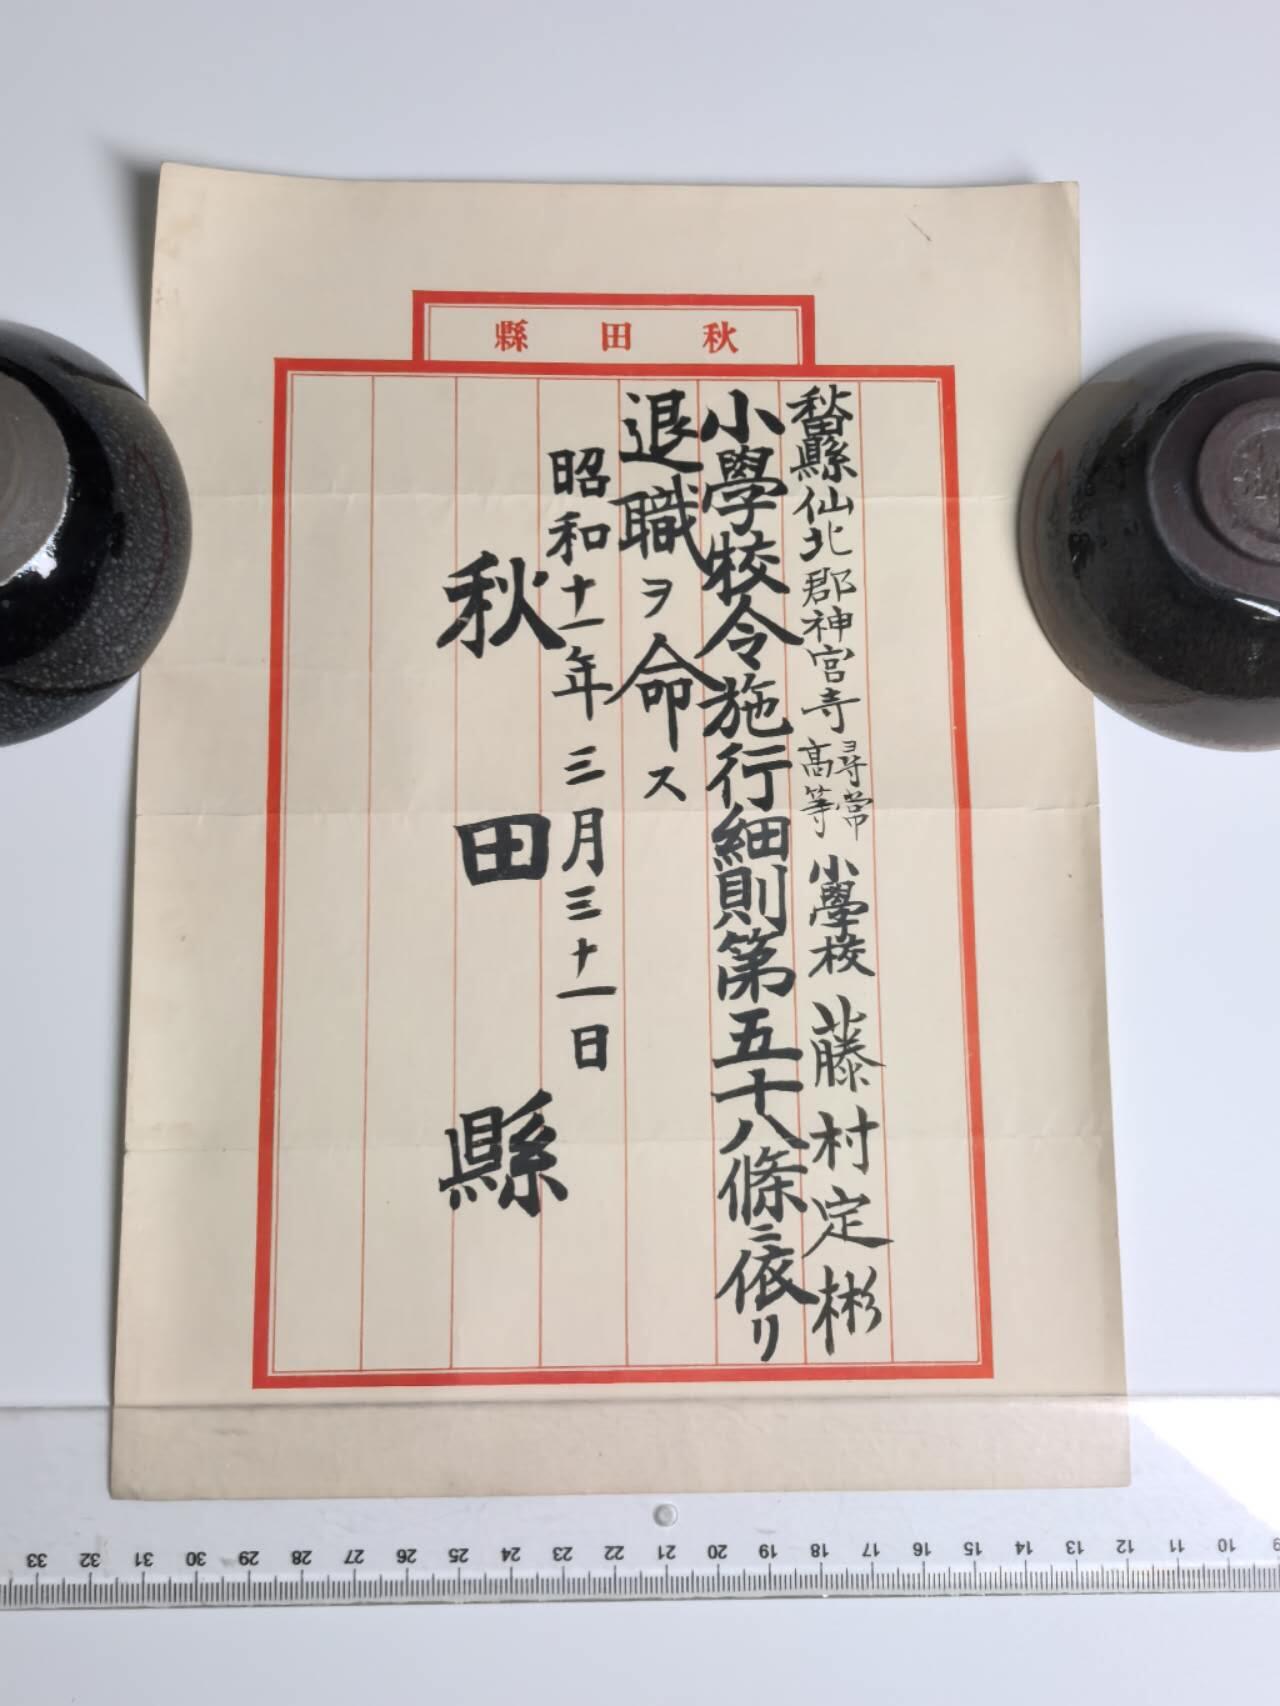 秋田縣
秋田縣仙北郡神宮寺尋常高等小學校 藤村定彬
小學校令施行細則第五十八條ニ依リ
退職ヲ命ス
昭和十一年三月三十一日
秋田縣
33 32 31 30 29 28 27 26 25 24 23 22 21 20 19 18 17 16 15 14 13 12 11 10 9